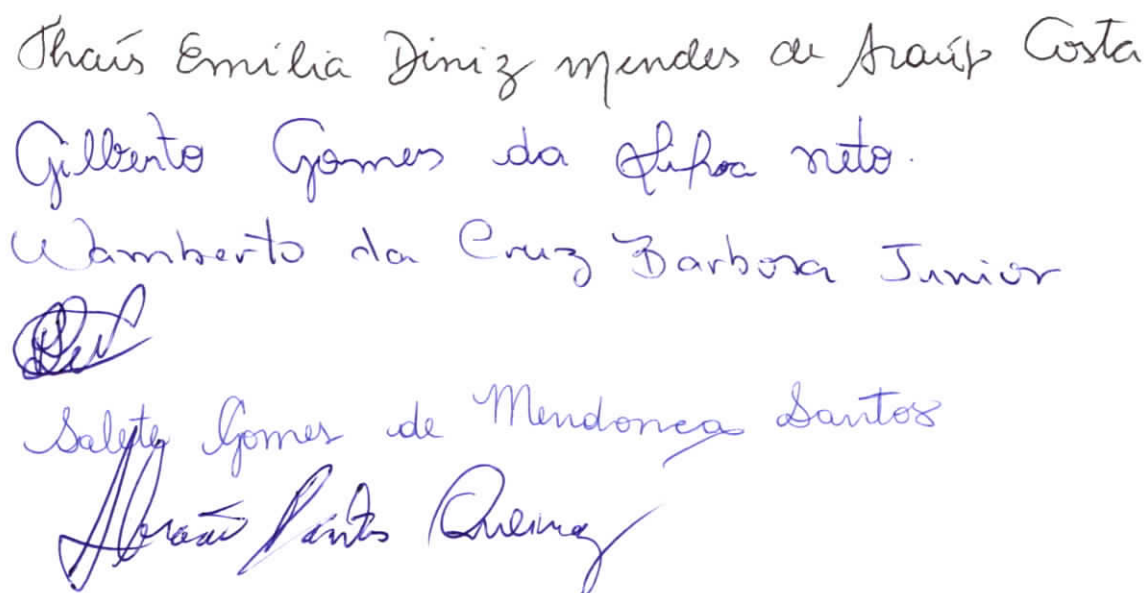 Thaís Emília Diniz Mendes de Araújo Costa
Gilberto Gomes da Neto.
Wamberto da Cruz Barbosa Junior
Salete Gomes de Mendonça Santos
Abraão Santos Queiroz